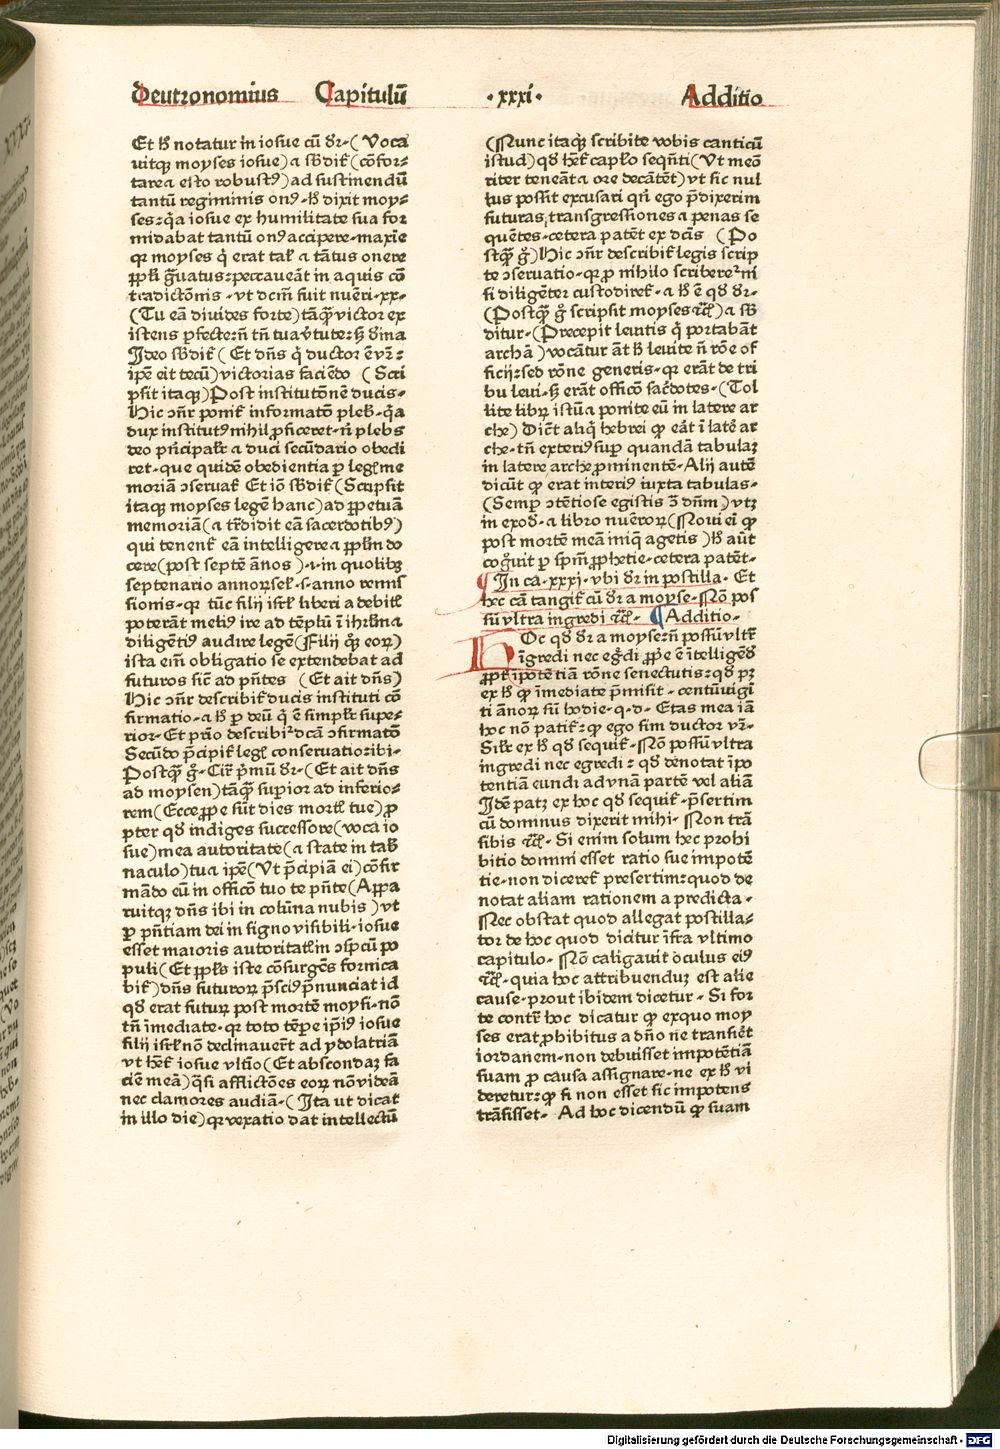 Deutronomius Capitulū ·xxxi· Additio
Et hͦ notatur in iosue cū dr̄·(Voca
uitqꝫ moyses iosue)a sb̄dit᷑(cōfor⸗
tare a esto robustꝰ)ad sustinendū
tantū regiminis onꝰ·hͦ dixit moy⸗
ses:qꝛa iosue ex humilitate sua for
midabat tantū onꝰ accipere·maxīe
qꝛ moyses q̇ erat tal᷑ a tātus onere
p̄pl̄i g̃uatus:peccauerāt in aquis cō
tradictōnis·vt dcm̄ fuit nūeri·xx·
(Tu eā diuides forte)tāꝗ̄ victor ex
istens pfecte:n̄ tn̄ tua v̓tute:sꝫ diīna
Ideo sb̄dit᷑(Et dn̄s q̇ ductor ē vr̄:
ip̄e eit tecū)victorias faciēdo (Scri
psit itaqꝫ)Post institutōnē ducis·
Hic ↄn̄r ponit᷑ informatō pleb̓·qꝛa
dux institutꝰ nihil ꝓficeret·n̄ plebs
deo pn̄cipalr̄ a duci secūdario obedi
ret·que quidē obedientia ꝑ legl̄ me
moriā ↄseruat᷑ Et iō sb̄dit᷑(Scripsit
itaqꝫ moyses legē hanc)ad ꝑpetuā
memoriā(a tr̄didit eā sacerdotibꝰ)
qui tenent᷑ eā intelligere a p̄pl̄m do
cere(post septē ānos)·i·in quolibꝫ
septenario annoꝝ scꝫ·s·anno remis
sionis·qꝛ tūc filij isrl̄ liberi a debitl̄
poterāt meliꝰ ire ad tēplū ī ihrl̄m a
diligētiꝰ audire legē(Filij qꝫ eoꝝ)
ista em̄ obligatio se extendebat ad
futuros sic̄ ad pn̄tes (Et ait dn̄s)
Hic ↄn̄r describit᷑ ducis instituti cō
firmatio·a hͦ ꝑ deū q̇ ē simplr̄ supe⸗
rior·Et pͥmo describit᷑ dcā ↄfirmatō
Secūdo p̄cipit᷑ legl̄ conseruatio:ibi·
Postꝗ̄ g̊·Circͣ pͥmū dr̄·(Et ait dn̄s
ad moysen)tāꝗ̄ supior ad inferio⸗
rem(Ecce ꝓpe sūt dies mortl̄ tue)ꝓ
pter qd̓ indiges successore(voca io
sue)mea autoritate(a state in tab̓
naculo)tu a ip̄e(Vt p̄cipiā ei)cōfir
mādo eū in officō tuo te pn̄te(Appa
ruitqꝫ dn̄s ibi in colūna nubis)vt
ꝑ pn̄tiam dei in signo visibili·iosue
esset maioris autoritatl̄ in ↄspcū po
puli(Et p̄pl̄s iste cōsurgēs fornica
bit᷑)dn̄s futuroꝝ p̄sciꝰ pn̄unciat id
qd̓ erat futuꝝ post mortē moysi·nō
tn̄ īmediate·qꝛ toto tēpe ip̄iꝰ iosue
filij isrl̄ nō declinauert̄ ad ydolatriā
vt het̄ iosue vltīo(Et abscondaꝫ fa
ciē meā)ꝗ̄si afflictōes eoꝝ nō videā
nec clamores audiā·(Ita ut dicat
in illo die)qꝛ vexatio dat intellectū
(Nunc itaqꝫ scribite vobis canticū
istud)qd̓ het̄ capl̓o seqn̄ti(Vt meō
riter teneāt a ore decātēt)vt sic nul
lus possit excusari qn̄ ego p̄dixerim
futuras transgressiones a penas se
quētes·cetera patēt ex dcīs (Po
stꝗ̄ g̊)Hic ↄn̄r describit᷑ legis scrip
te ↄseruatio·qꝛ ꝓ nihilo scriberet᷑ ni
si diligēter custodiret᷑·a hͦ ē qd̓ dr̄·
(Postꝗ̄ g̊ scripsit moyses ⁊cͣ)a sb̄
ditur·(Precepit leuitis q̇ portabāt
archā)vocāntur āt hͦ leuite n̄ rōe of
ficij:sed rōne generis·qꝛ erāt de tri
bu leui·sꝫ erāt officō sac̓dotes·(Tol
lite libꝝ istū a ponite eū in latere ar
che)Dicūt aliq̇ hebrei ꝙ eāt ī latē ar
che·tn̄ exteriꝰ sup quandā tabulaꝫ
in latere arche ꝓminentē·Alij autē
dicūt ꝙ erat interiꝰ iuxta tabulas·
(Semp ↄtētiose egistis ↄ̄ dn̄m)vtꝫ
in exod̓·a libro nūeroꝝ(Noui ei̓ ꝙ
post mortē meā iniq̄ agetis)hͦ aūt
cog̊uit ꝑ spm̄ ꝓphetie·cetera patēt·
¶In ca·xxxj·vbi dr̄ in postilla· Et
hec cā tangit᷑ cū dr̄ a moyse·Nō pos
sū vltra ingredi ⁊cͣ· ¶Additio·
Hoc qd̓ dr̄ a moyse:n̄ possū vltr̄
īgredi nec eg̓di ꝓpe ē ītelligēd̓
ꝓpt̓ īpotētiā rōne senectutis:qd̓ pꝫ
ex hͦ ꝙ īmediate p̄misit·centū vigī
ti ānoꝝ sū hodie·q·d·Etas mea iā
hoc nō patit᷑:ꝙ ego sim ductor vr̄·
Silr̄ ex hͦ qd̓ sequit᷑·Nō possū vltra
ingredi nec egredi: qd̓ denotat īpo
tentiā eundi ad vnā partē vel aliā
Idē patꝫ ex hoc qd̓ sequit᷑·p̄sertim
cū dominus dixerit mihi·Non trā
sibis ⁊cͣ·Si enim solum hec prohi
bitio domini esset ratio sue impotē
tie·non diceret᷑ presertim:quod de
notat aliam rationem a predicta·
Nec obstat quod allegat postilla⸗
tor de hoc quod dicitur īfra vltimo
capitulo·Nō caligauit oculus eiꝰ
⁊cͣ·quia hoc attribuenduꝫ est alie
cause·prout ibidem dicetur·Si for
te contr̄ hoc dicatur ꝙ exquo moy
ses erat ꝓhibitus a dn̄o ne transiret
iordanem·non debuisset impotētiā
suam ꝓ causa assignare·ne ex hͦ vi
deretur:ꝙ si non esset sic impotens
trāsisset· Ad hoc dicendū ꝙ suam
Digitalisierung gefördert durch die Deutsche Forschungsgemeinschaft - DFG